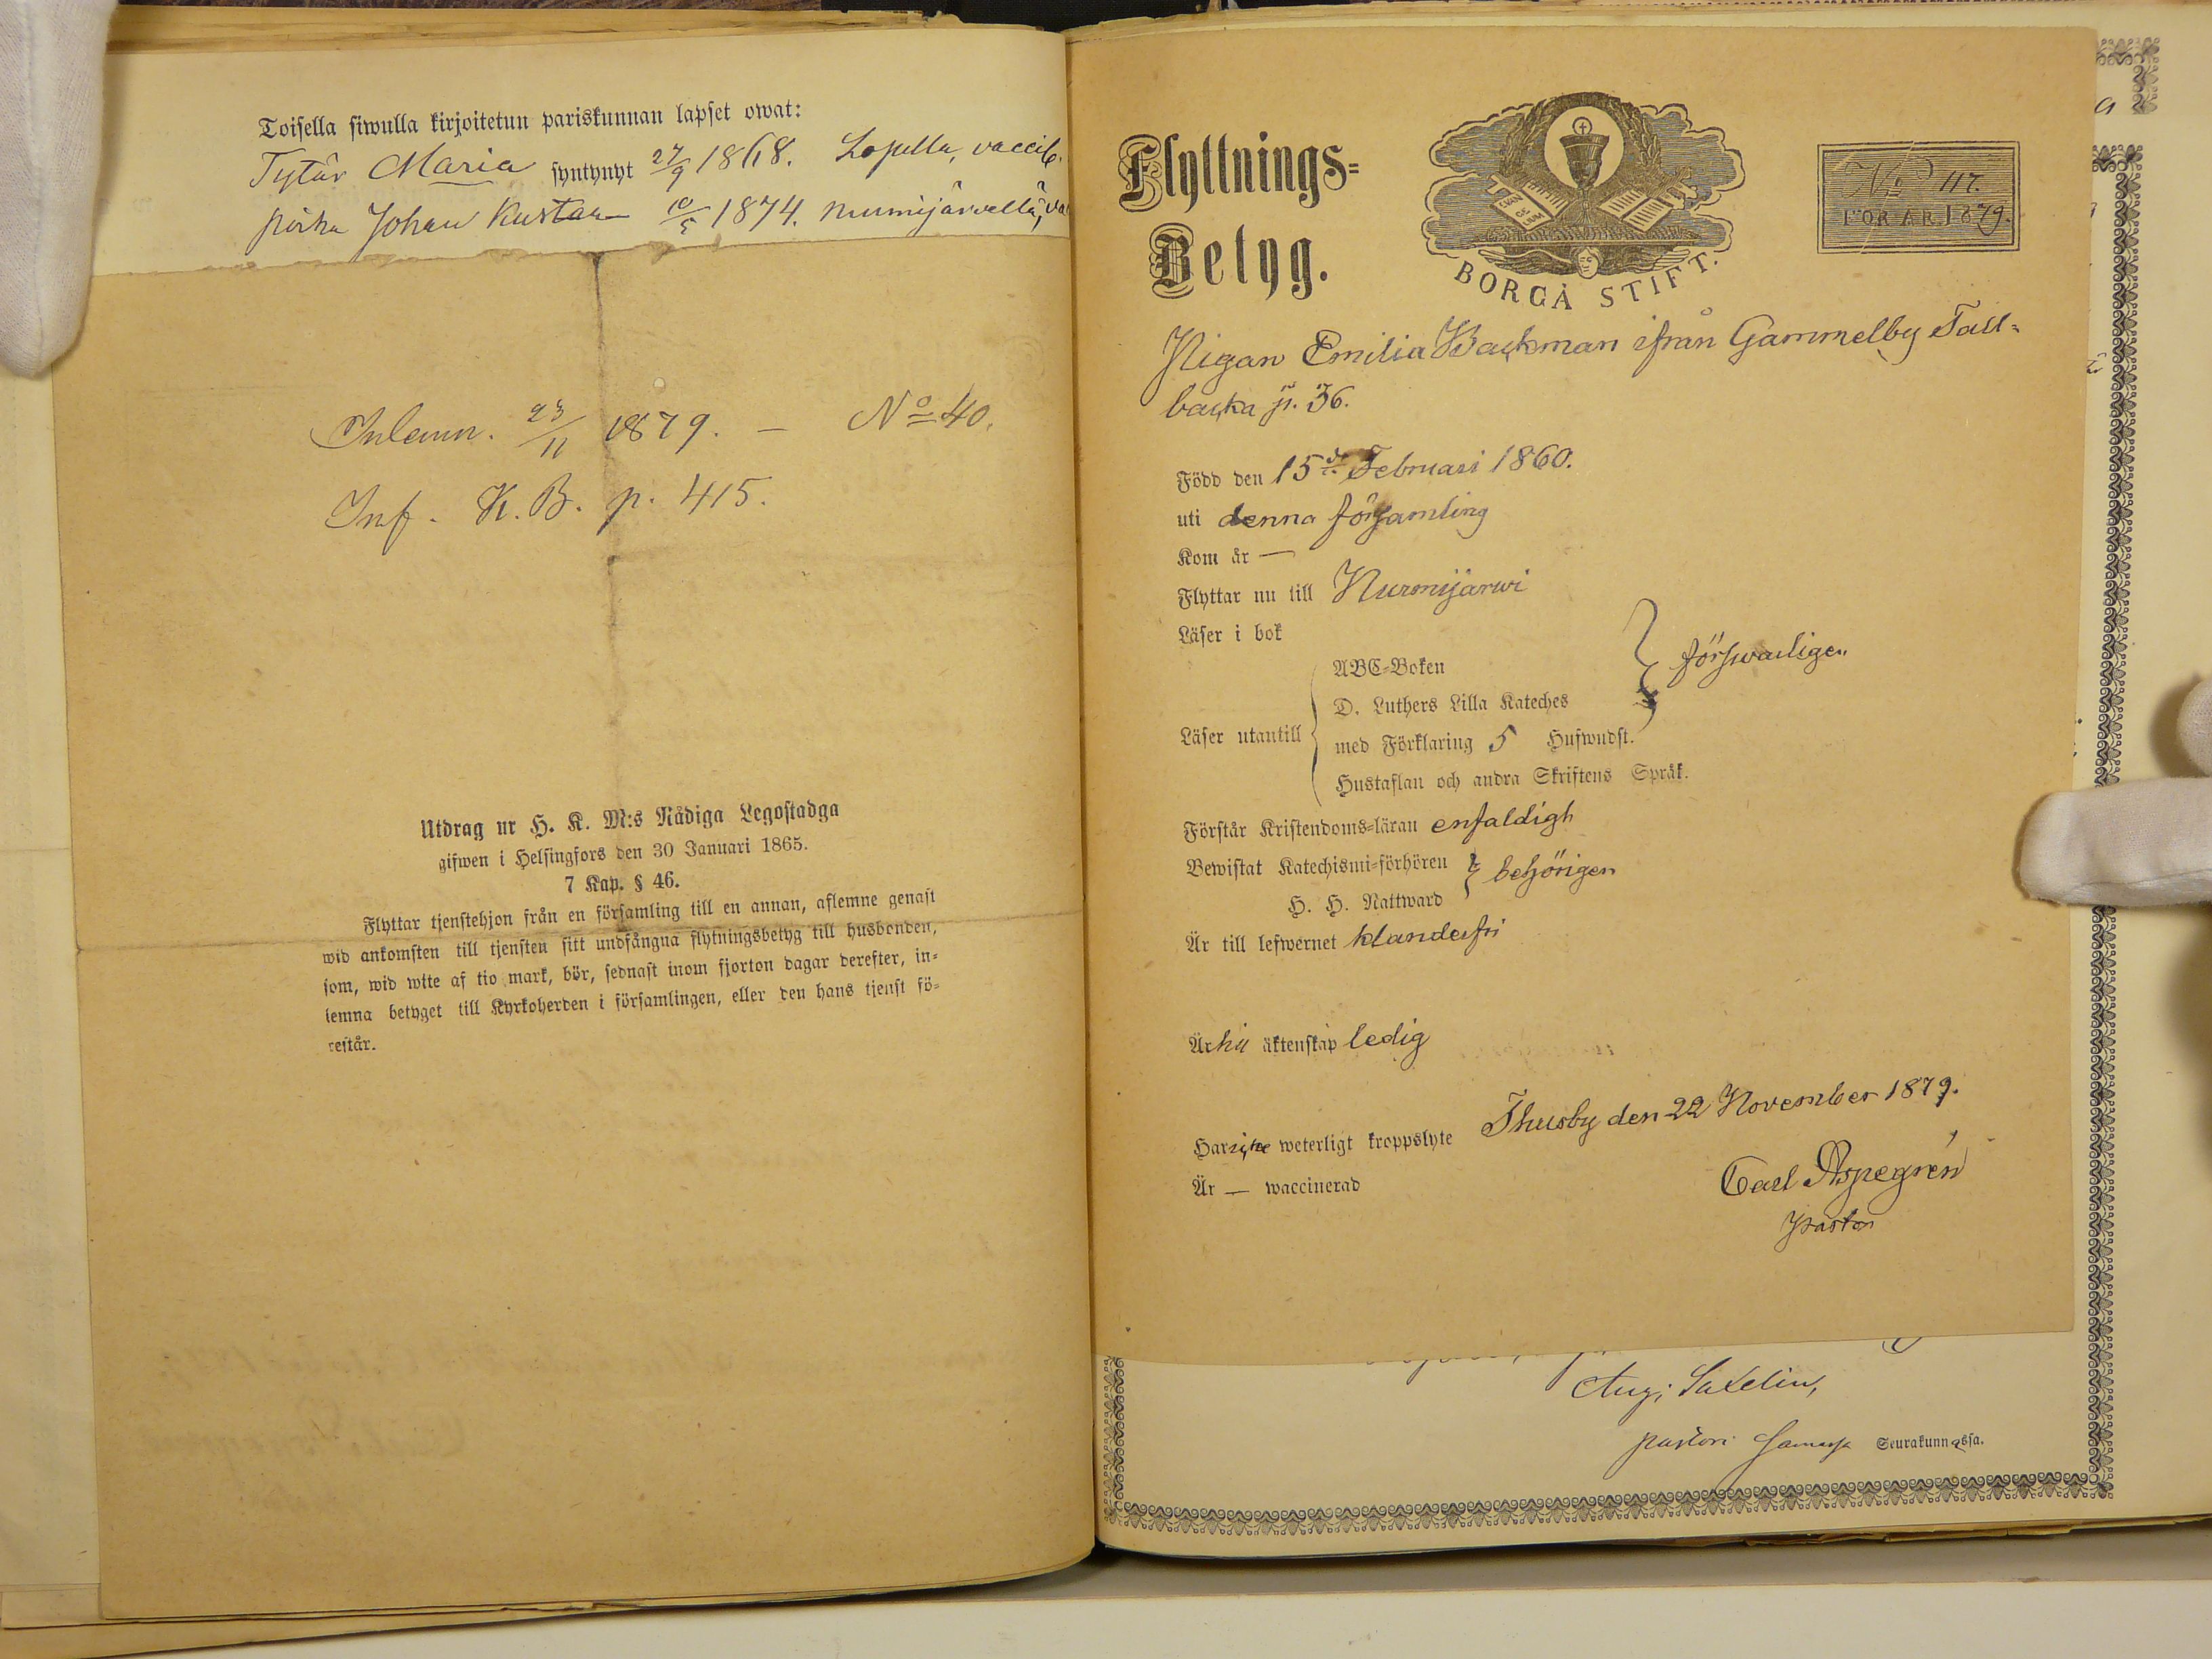 Toisella siwulla kirjoitetun pariskunnan lapset owat:
Tytär Maria syntynyt 27/9 1868. Lopella, vaccil.
poika Johan Kustaa 10/5 1874. Nurmijärvellä, va
Inlemn. 23/11 1879. — No 40.
Inf. K. B. p. 415.
Utdrag ur H. K. M:s Nådiga Legostadga
gifwen i Helsingfors den 30 Januari 1865.
7 Kap. § 46.
Flyttar tjenstehjon från en församling till en annan, aflemne genast
wid ankomsten till tjensten sitt undfångna flytningsbetyg till husbonden,
som, wid wite af tio mark, bör, sednast inom fjorton dagar derefter, in-
lemna betyget till Kyrkoherden i församlingen, eller den hans tjenst fö-
restår.
Flyttnings-
Betyg.
EVAN
GE
LIUM
BORGÅ STIFT.
No 117.
FÖR ÅR 1879.
Pigan Emilia Backman ifrån Gammelby Tall-
backa p. 36.
Född den 15de Februari 1860.
uti denna församling
Kom år —
Flyttar nu till Nurmijärwi
Läser i bok
ABC-Boken
D. Luthers Lilla Kateches
Läser utantill
med Förklaring 5 Hufwudst.
Hustaflan och andra Skriftens Språk.
försvarligen
Förstår Kristendoms-läran enfaldigt
Bewistat Katechismi-förhören
H. H. Nattward
behörigen
Är till lefwernet klanderfri
Är till äktenskap ledig
Thusby den 22 November 1879.
Har icke weterligt kroppslyte
Är — waccinerad
Carl Aspegrén
Pastor
Aug. Saxelin,
pastori samassa Seurakunnassa.